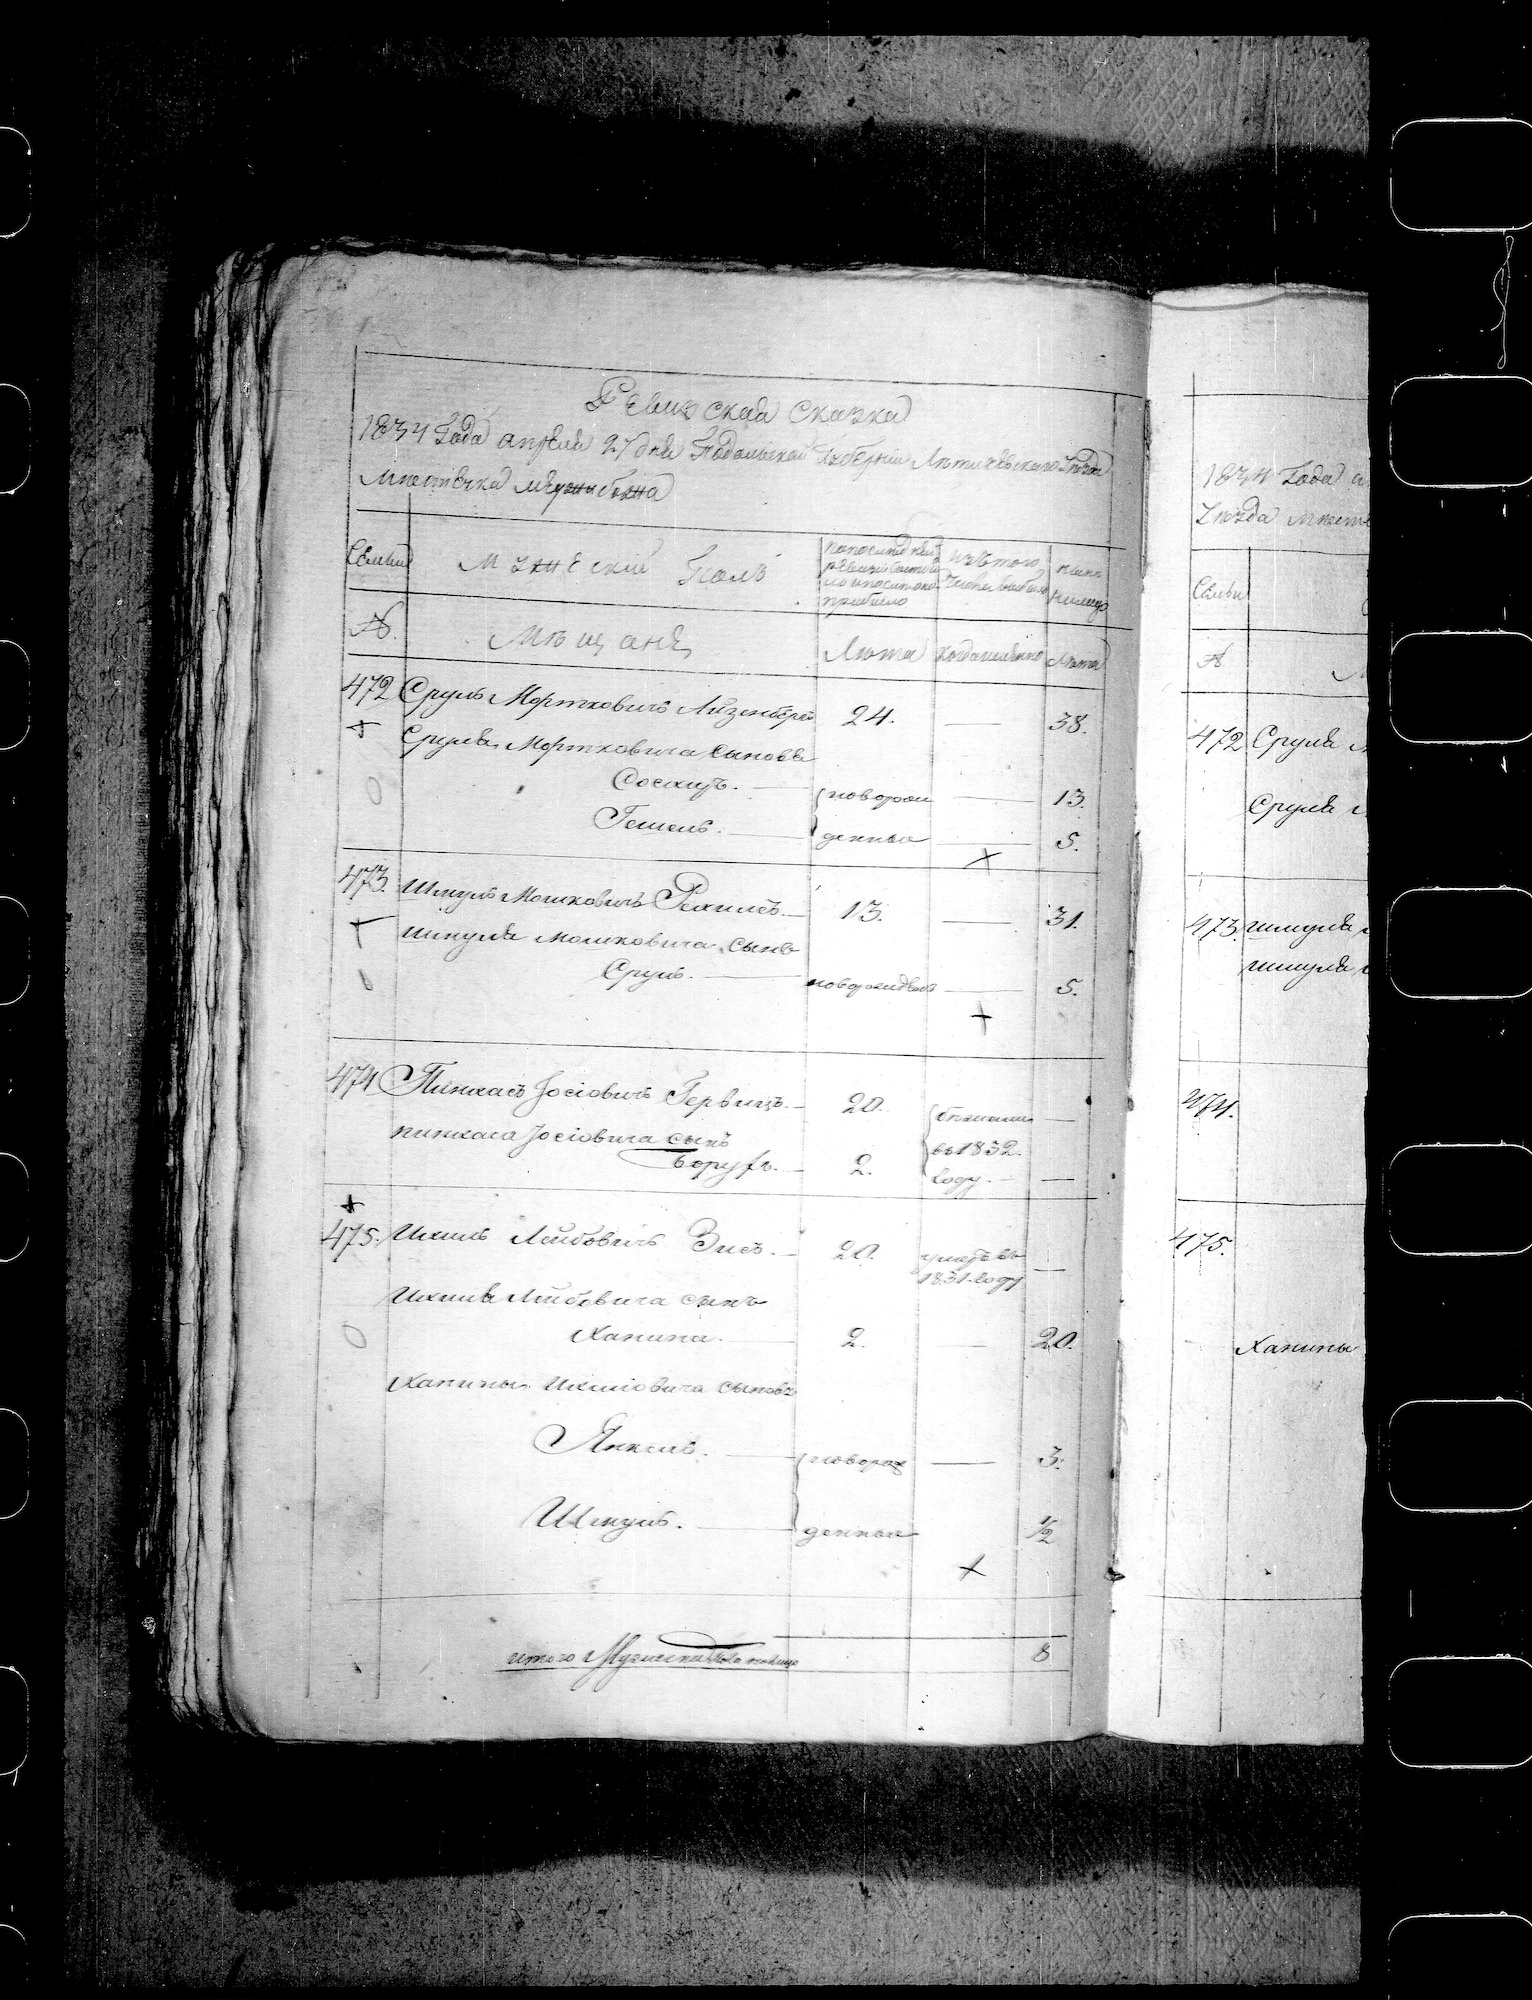 Ревизская Сказка
1834 Года апреля 27 дня Подольской Губернии Летичевского Уезда
Местечка Меужибожа
Семьи
Мужеский Полъ
по последней ревизии состояло и после того прибыло
Изъ того числа выбыло
Ныне на лицо
№.
Мещане
Лета
Когда именно
Лета
472 Сруль Мортковичъ Айзенберг 24. — 38.
Сруля Мортковича сыновья
Иосипъ. — новорож — 13.
Гешель. — денные — 5.
473. Шмуль Мошковичъ Рехлисъ. — 13. — 31.
Шмуля Мошковича сынъ
Сруль. — новорожденъ — 5.
474 Пинхасъ Іосіовичъ Гервицъ. — 20. бежали —
Пинхаса Іосіовича сынъ въ 1832.
Борухъ. — 2. году. —
475. Ихиль Лейбовичъ Зисъ. — 20. умеръ въ —
1831. году
Ихиля Лейбовича сынъ
Ханина. — 2. — 20.
Ханины Ихилiовича сыновья
Янкель. — новорож — 3.
Шмуль. — денные 1/2
итого Мужеска пола на лицо 8
1834 Года а
Уезда Мест
Семьи
№
472 Сруля М
Сруля М
473. Шмуля
Шмуля
474.
475.
Ханины